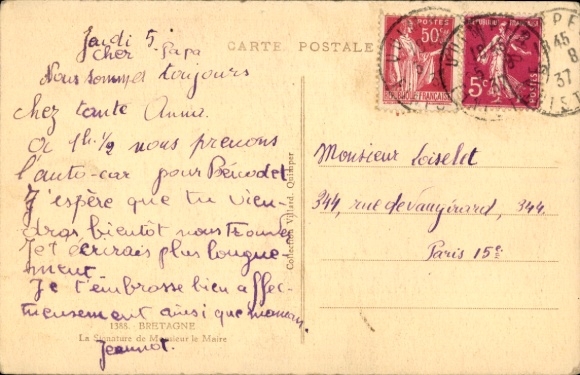 Jeudi 5.
Cher Papa
Nous sommes toujours
chez tante Anna.
A 1h.½ nous prenons
l'auto-car pour Bénodet
J'espère que tu vien-
dras bientôt nous trouver
Je t'écrirais plus longue-
ment.
Je t'embrasse bien affec-
tueusement ainsi que maman.
Jeannot.
1388. - BRETAGNE
La Signature de Monsieur le Maire
CARTE POSTALE
Collection Villard, Quimper
POSTES
50c
RÉPUBLIQUE FRANÇAISE
5c
POSTES
45
8
37
Monsieur Loiselet
344, rue de Vaugirard, 344.
Paris 15e